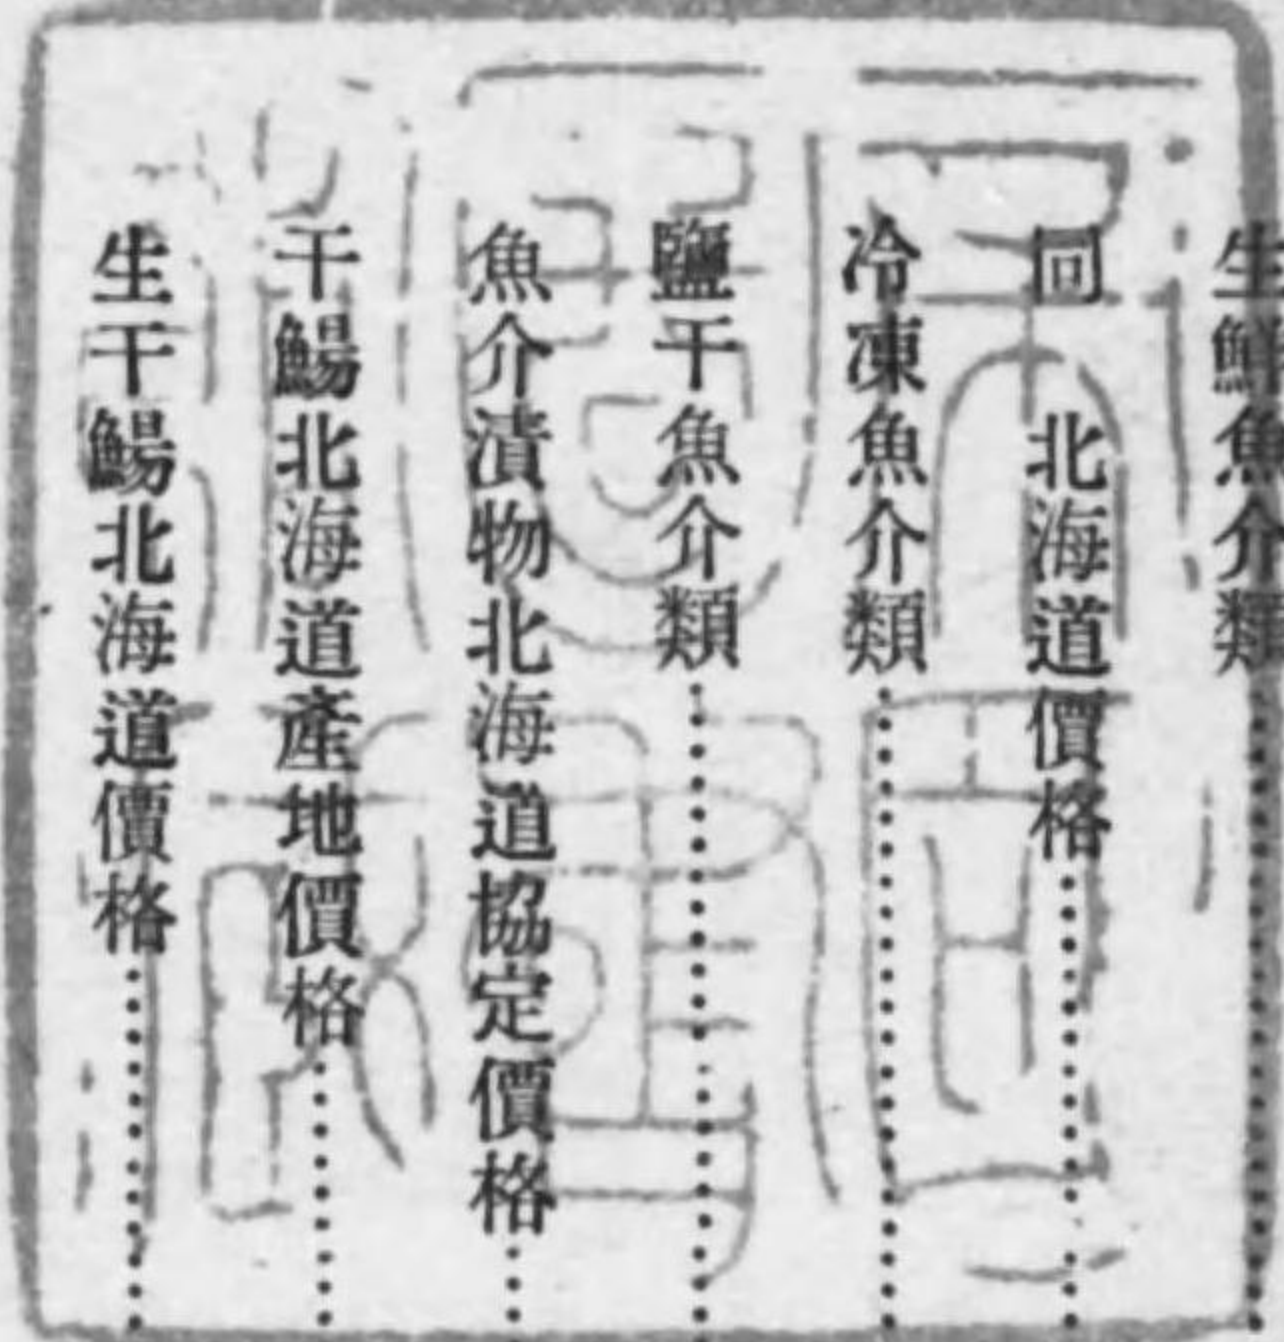 生鮮魚介類……………………
同　北海道價格………………
冷凍魚介類……………………
鹽干魚介類……………………
魚介漬物北海道協定價格……
干鯣北海道產地價格…………
生干鯣北海道價格……………